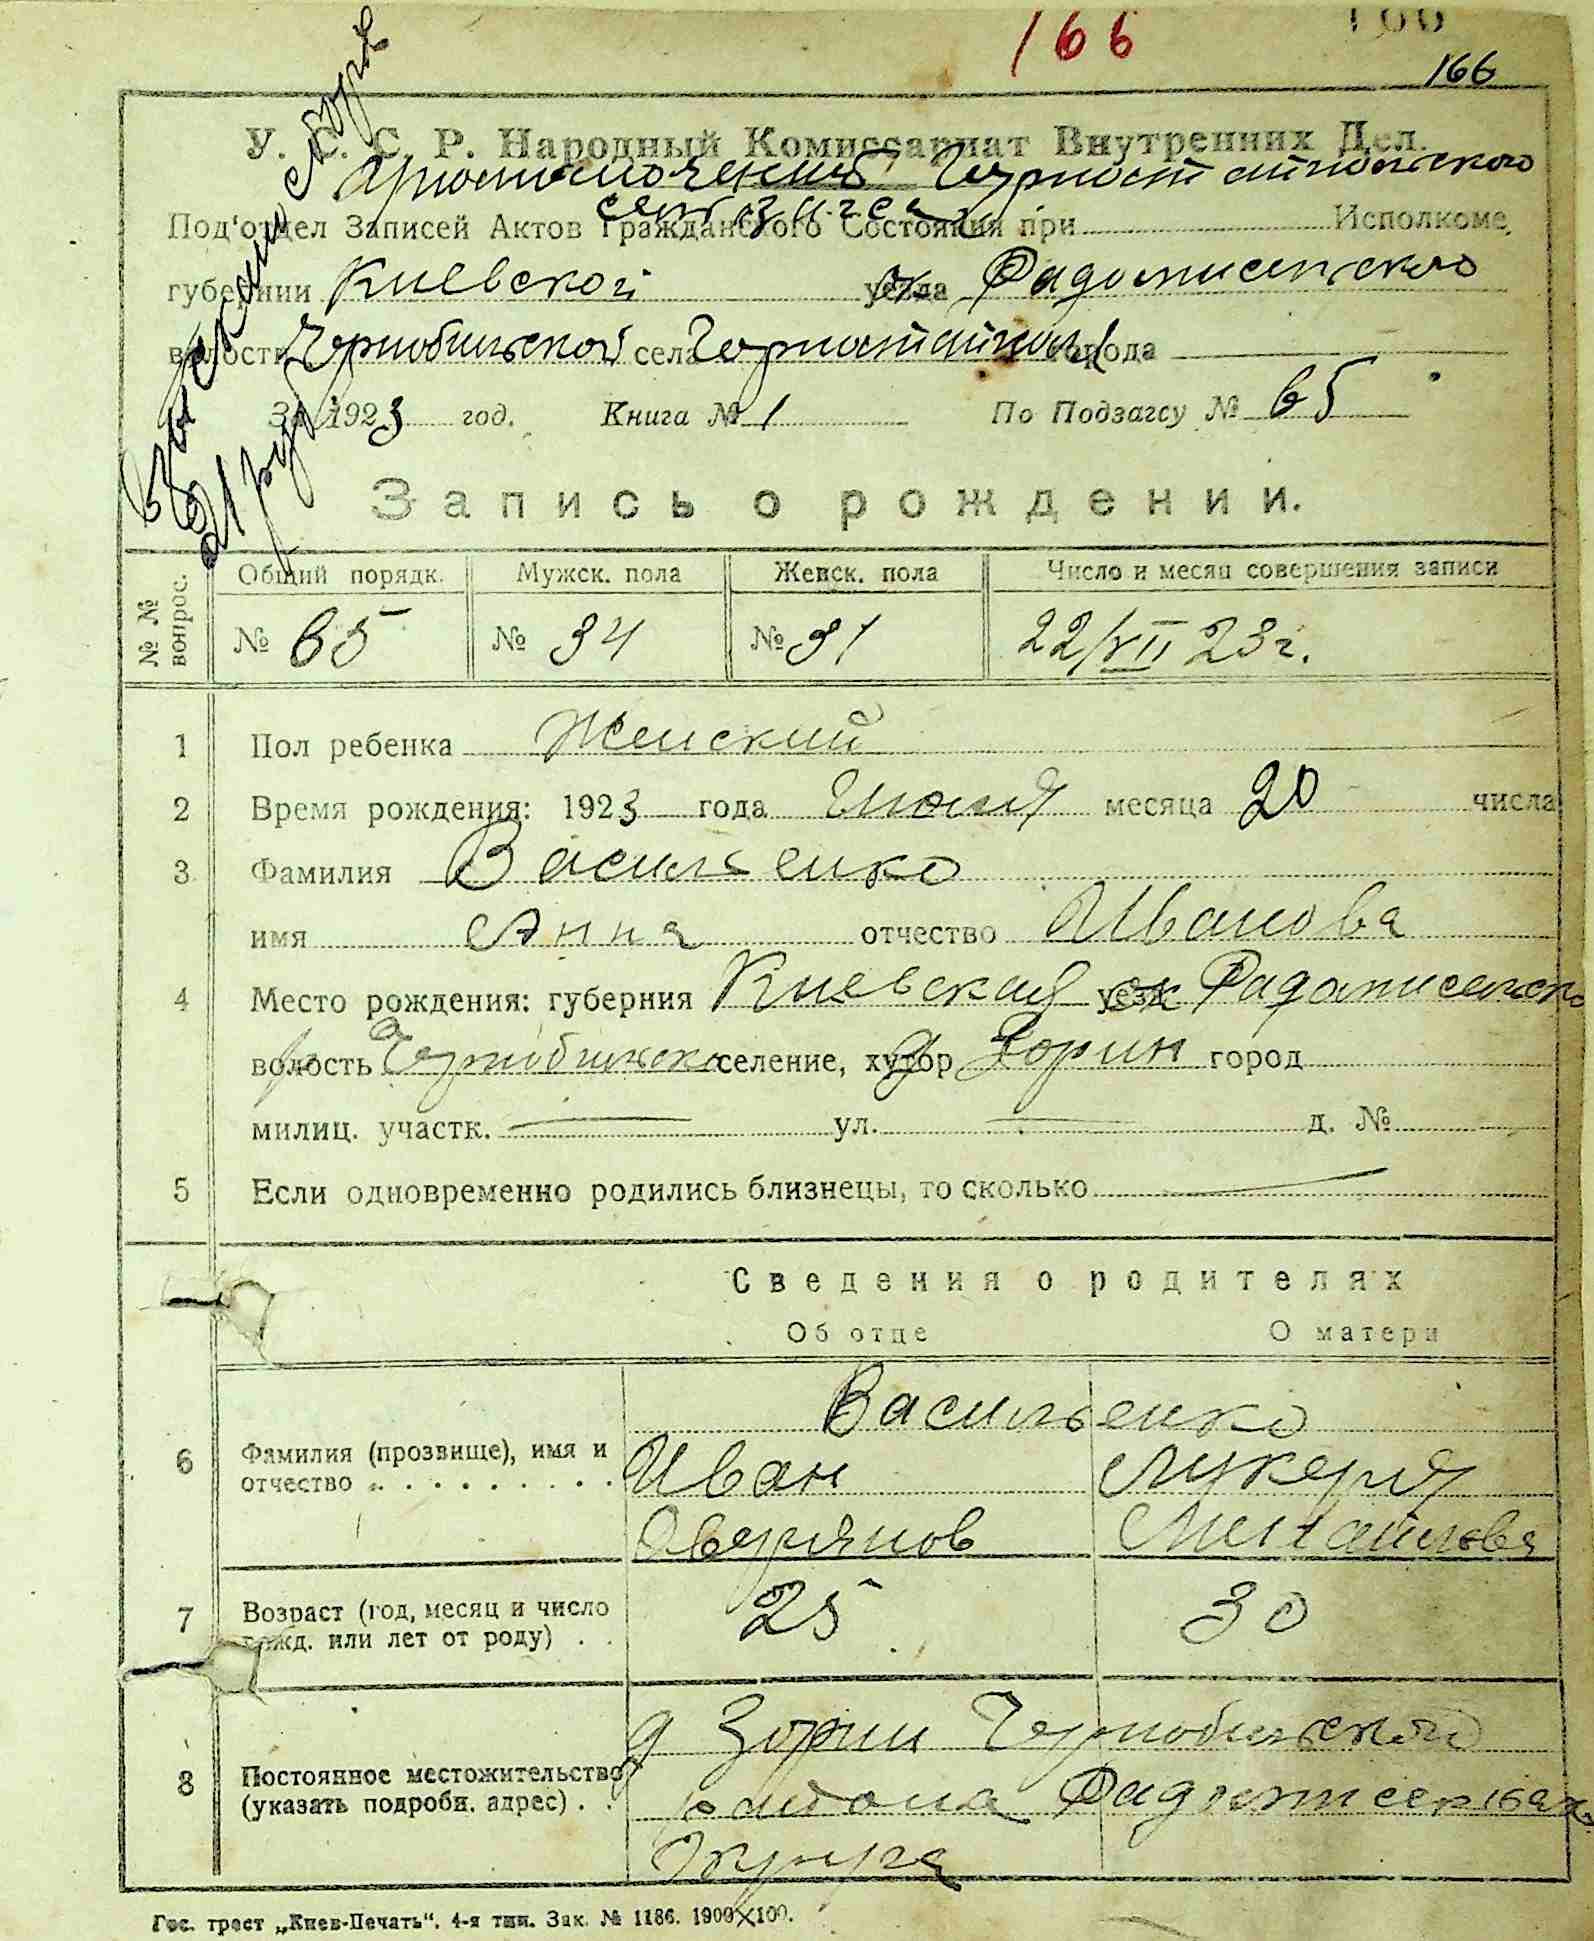 166
166
У. С. С. Р. Народный Комиссариат Внутренних Дел.
Под'отдел Записей Актов Гражданского Состояния при Исполкоме
губернии Киевской уезда Радомисльского
волости Чорнобильской села города
За 1923 год. Книга № 1 По Подзагсу № 65
Запись о рождении.
№ № вопрос. Общий порядк. Мужск. пола Женск. пола Число и месяц совершения записи
№ 65 № 34 № 31 22/VII 23 г.
1 Пол ребенка Женский
2 Время рождения: 1923 года месяца 20 числа
3 Фамилия Васильенко
имя Анна отчество Иванова
4 Место рождения: губерния Киевская уезд ок Радомисельск
волость Чернобильска селение, хутор д Зорин город
милиц. участк. ул. д. №
5 Если одновременно родились близнецы, то сколько
Сведения о родителях
Об отце О матери
Васильенко
6 Фамилия (прозвище), имя и Иван Лукеря
отчество Оверянов Михайлова
7 Возраст (год, месяц и число 25 30
рожд. или лет от роду)
д Зорин Чернобильской
8 Постоянное местожительство района
(указать подробн. адрес)
Округа
Гос. трест „Киев-Печать“. 4-я тип. Зак. № 1186. 1900×100.